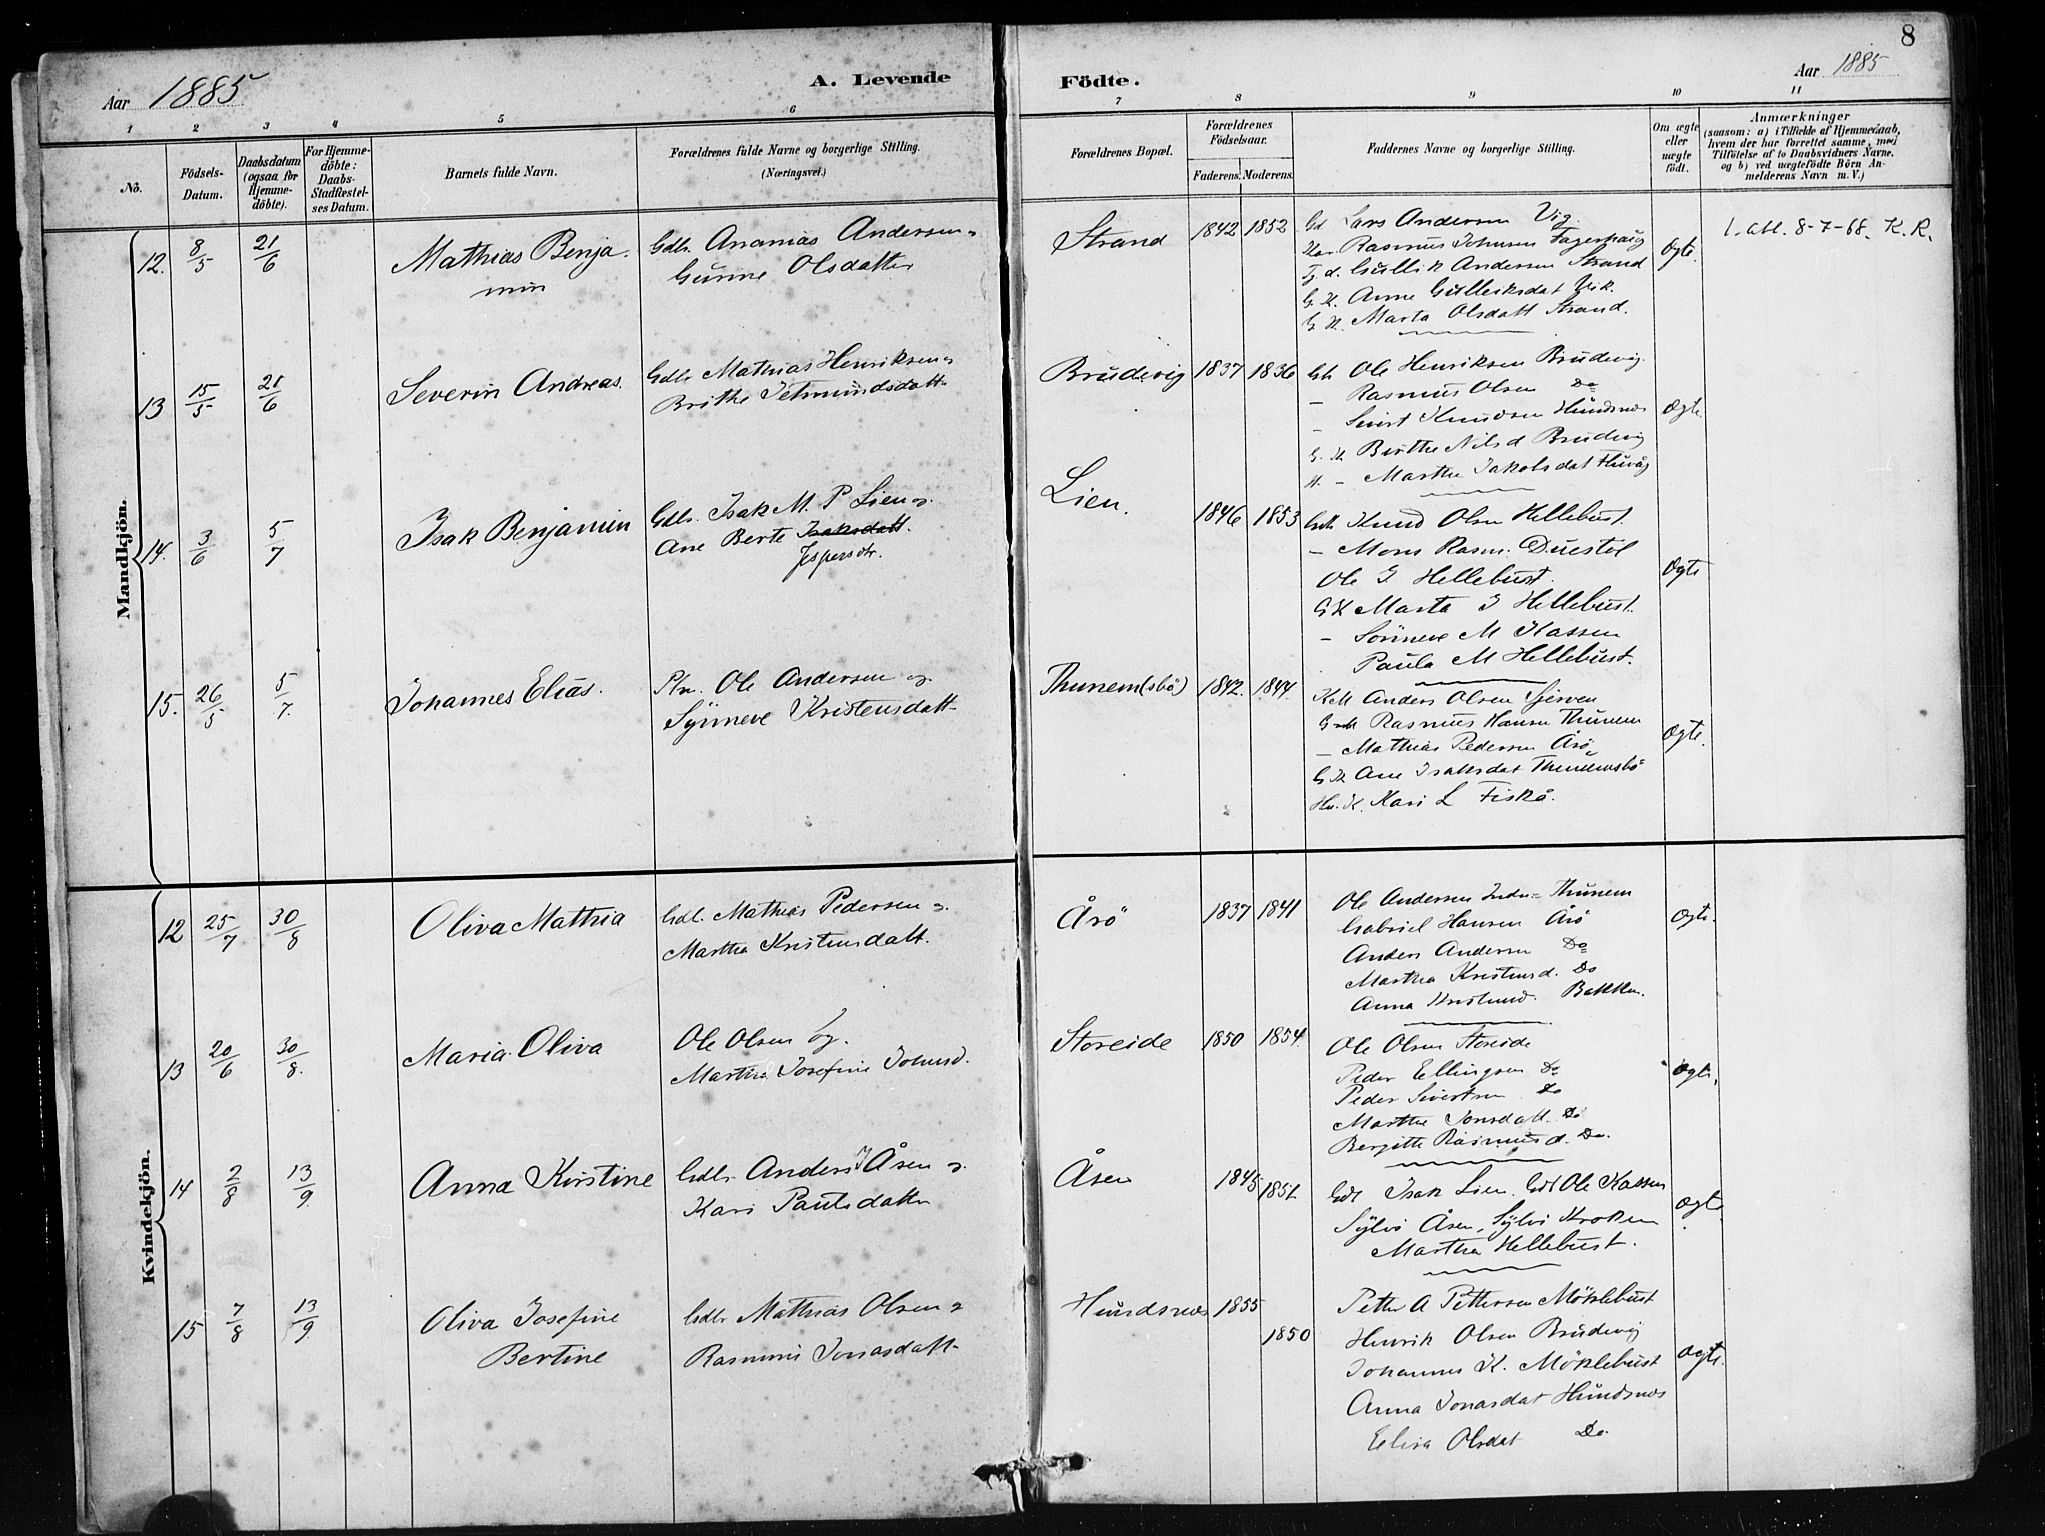 8
Aar 1885
A. Levende
Födte.
Aar 1885
1 2 3 4 5 6 7 8 9 10 11
No.
Födsels-Datum.
Daabsdatum (ogsaa for Hjemme-döbte).
For Hjemme-döbte: Daabs-Stadfæstel-ses Datum.
Barnets fulde Navn.
Forældrenes fulde Navne og borgerlige Stilling.
(Næringsvei.)
Forældrenes Bopæl.
Forældrenes Födselsaar.
Faderens. Moderens.
Faddernes Navne og borgerlige Stilling.
Om ægte eller uægte födt.
Anmærkninger
(saasom: a) i Tilfælde af Hjemmedaab,
hvem der har forrettet samme, med
Tilföielse af to Daabsvidners Navne,
og b) ved uægtefödte Börn An-
melderens Navn m. V.)
Mandkjön.
12. 8/5 21/6 Mathias Benja-
min
Gdbr Ananias Andersen o
Gurine Olsdatter
Strand 1842 1852
Gd Lars Andersen Vig.
Kar Rasmus Johnsen Fagerhaug
Tj. d. Gullik Andersen Strand
G. K. Anne Gulleiksdat Vik.
G. K. Marta Olsdatt Strand.
Ægte.
1. att. 8-7-68. K. R.
13 15/5 21/6 Severin Andreas.
Gdbr Mathias Henriksen o
Brithe Jetmundsdatt-
Brudevig 1837 1836
Gb. Ole Henriksen Brudevig.
– Rasmus Olsen Do
– Sivert Knudsen Hundsnes
G. K Birthe Nils d Brudevig
K. – Marthe Jakobsdat
Ægte.
14. 3/6 5/7 Isak Benjamin
Gdbr. Isak M. P Lien o.
Ane Berte Isaksdatt.
Jespersdtr.
Lien. 1846 1853
Gdb Knud Olsen Hellebust.
– Mons Rasm. Duestøl
Ole I Hellebust.
G K Marta I Hellebust.
– Sørineve M Hassen
Paula M Hellebust.
Ægte
15. 26/5 5/7. Johannes Elias.
Pln. Ole Andersen og
Synneve Kristensdatt-
Thunem(sbö) 1842. 1844.
Anders Olsen Gjerven
Rasmus Hansen Thunem
– Mathias Pedersen Årö
G K Ane Isaksdat Thunemsbö
Kari L Fiskå.
Ægte.
Kvindekjön.
12 25/7 30/8 Oliva Mathea
Gdb. Mathias Pedersen o.
Martha Kristensdatt.
Årö 1837 1841
Ole Andersen Thunem
Gabriel Hansen Årö
Anders Andersen Do
Martha Kristensd. Do
Anna Kristensd. Bakken.
Ægte.
13 20/6 30/8. Maria Oliva
Ole Olsen og.
Martha Josefine Johnsd.
Storeide 1850 1854.
Ole Olsen Storeide
Peder Ellingsen Do
Peder Sivertsen Do
Marthe Jonsdatt Do
Bergitte Rasmusd. Do.
Ægte.
14 2/8 13/9. Anna Kirstine
Gdbr. Anders J Åsen o.
Kari Paulsdatter
Åsen 1845 1851.
Gdb Isak Lien. Gdb Ole Kassen
Sylvi Åsen, Sylvi Kroken
Martha Hellebust.
Ægte.
15 7/8 13/9. Oliva Josefine
Bertine
Gdbr Mathias Olsen o
Rasmine Jonasdatt-
Hundsnes 1855 1850
Petter A Pettersen Möklebust
Henrik Olsen Brudevig
Johannes K. Möklebust
Anna Jonasdat Hundsnes
Olsdat Do.
Ægte.